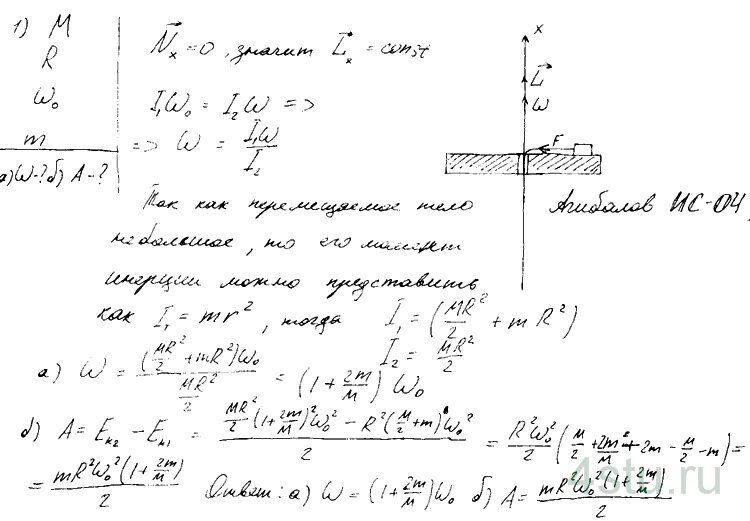 1) M
R
ω₀
m
а) ω-? б) A-?
N⃗ₓ = 0, значит L⃗ₓ = const
I₁ω₀ = I₂ω =>
=> ω = I₁ω / I₂
x
L⃗
ω
F
Агибалов ИС-04
Так как перемещаемое тело
небольшое, то его момент
инерции можно представить
как Iᵣ = mr², тогда I₁ = (MR²/2 + mR²)
I₂ = MR²/2
а) ω = (MR²/2 + mR²)ω₀ / (MR²/2) = (1 + 2m/M) ω₀
б) A = Eₖ₂ − Eₖ₁ = (MR²/2 (1 + 2m/M)² ω₀² − R²(M/2 + m)ω₀²) / 2 = R²ω₀²/2 (M/2 + 2m²/M + 2m − M/2 − m) =
= mR²ω₀²(1 + 2m/M) / 2 Ответ: а) ω = (1 + 2m/M)ω₀ б) A = mR²ω₀²(1 + 2m/M) / 2
4stu.ru